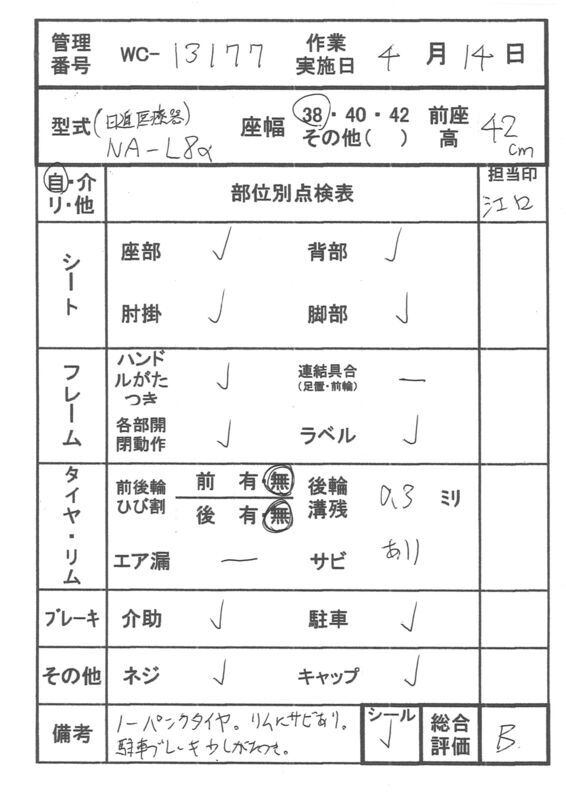 管理 作業
番号 WC- 13177 実施日 4 月 14 日
型式 (日進医療器) NA-L8α 座幅 38・40・42 その他( ) 前座高 42cm
自・介 部位別点検表 担当印
リ・他 江口
シート 座部 ✓ 背部 ✓
肘掛 ✓ 脚部 ✓
フレーム ハンドルがたつき ✓ 連結具合 (足置・前輪) —
各部開閉動作 ✓ ラベル ✓
タイヤ・リム 前後輪ひび割 前 有・無 後輪溝残 0.3 ミリ
後 有・無
エア漏 — サビ あり
ブレーキ 介助 ✓ 駐車 ✓
その他 ネジ ✓ キャップ ✓
備考 ノーパンクタイヤ。リムにサビあり。 シール ✓ 総合評価 B
駐車ブレーキ少しがたつき。